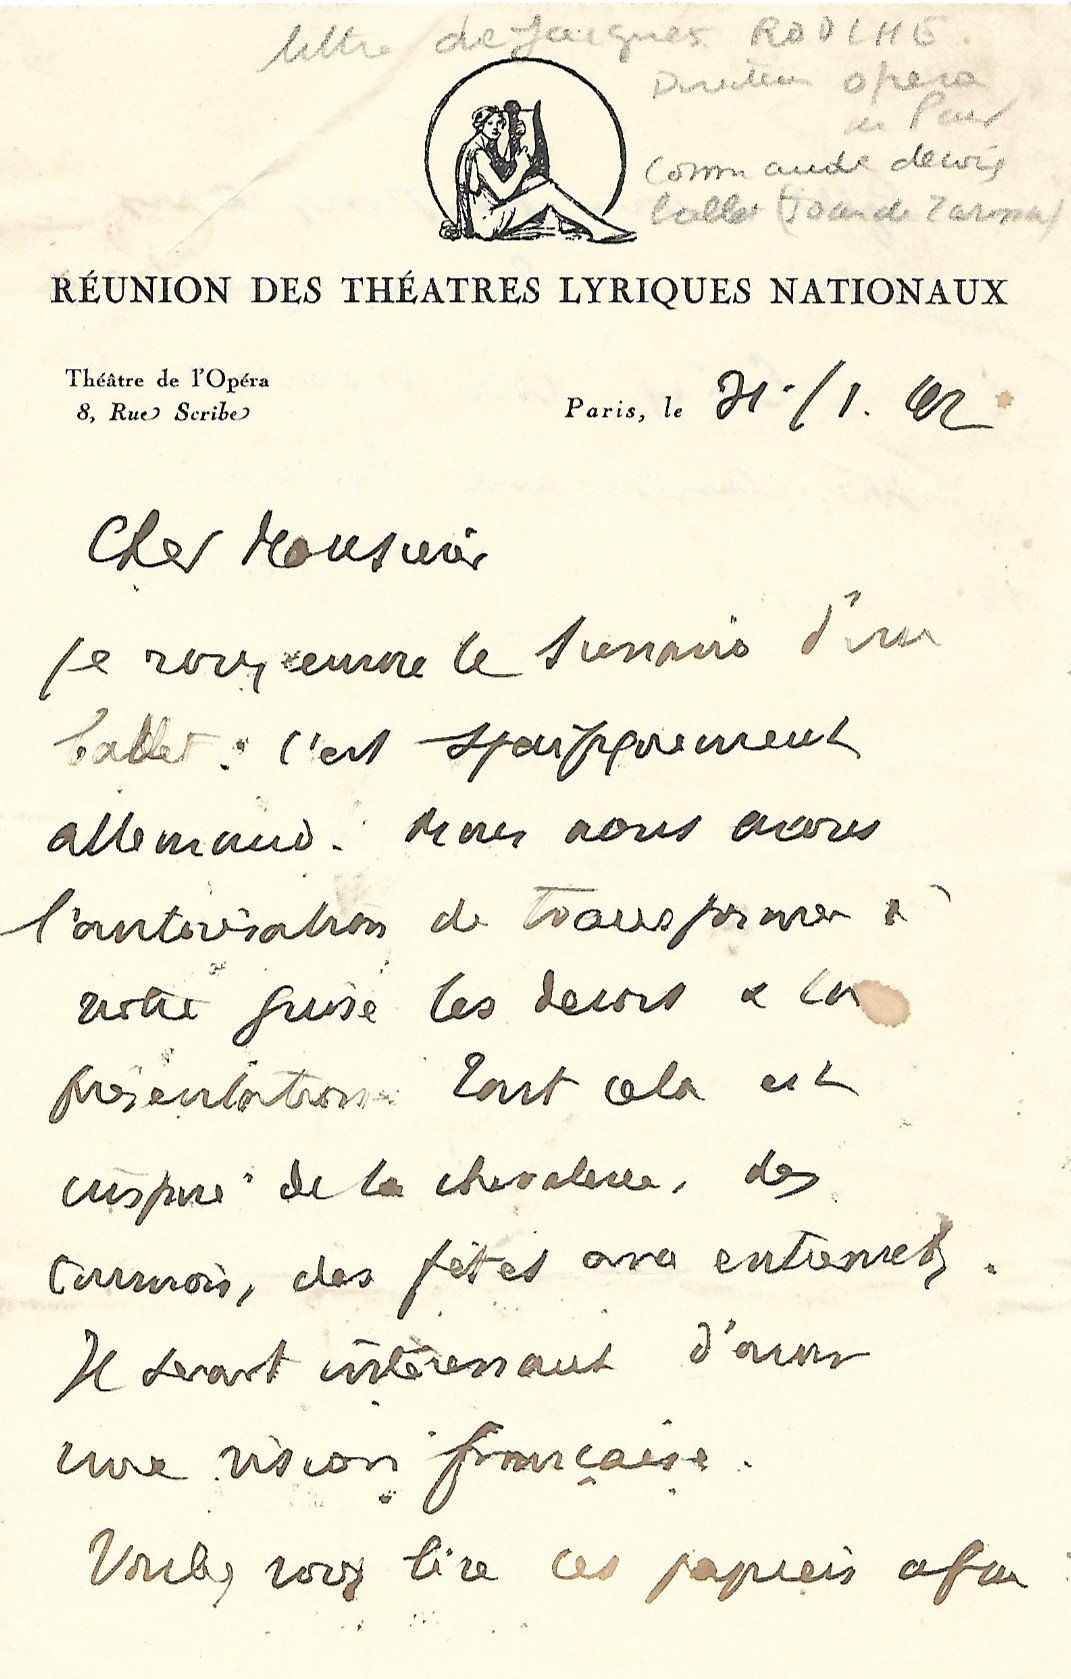 lettre de Jacques ROUCHE
Directeur opera
de Paris
Commande decors
ballet (Joan de Zarissa)
RÉUNION DES THÉATRES LYRIQUES NATIONAUX
Théâtre de l'Opéra
8, Rue Scribe
Paris, le 31/1. 42
Cher Monsieur
Je vous envoie le scenario d'un
ballet : c'est spécifiquement
allemand. Mais nous avons
l'autorisation de transformer à
notre guise les decors & la
présentation Tout cela est
inspiré de la chevalerie, des
tournois, des fêtes avec entremets.
Il serait intéressant d'avoir
une vision française.
Voulez vous lire ces papiers afin